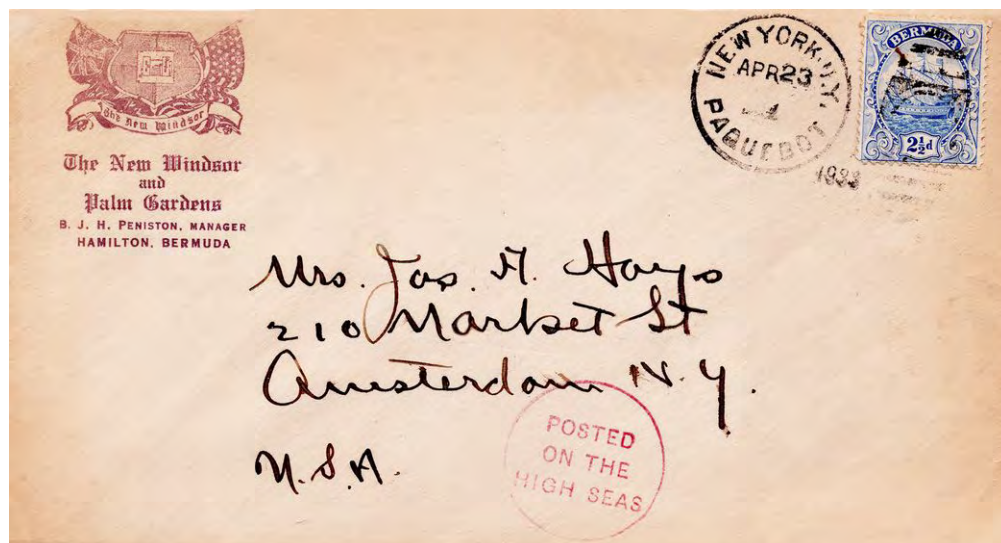 The New Windsor
The New Windsor
and
Palm Gardens
B. J. H. PENISTON, MANAGER
HAMILTON, BERMUDA
NEW YORK, N.Y.
APR 23
PAQUEBOT
1933
BERMUDA
2½d
Mrs. Jas. H. Hays
210 Market St
Amsterdam N.Y.
U.S.A.
POSTED
ON THE
HIGH SEAS